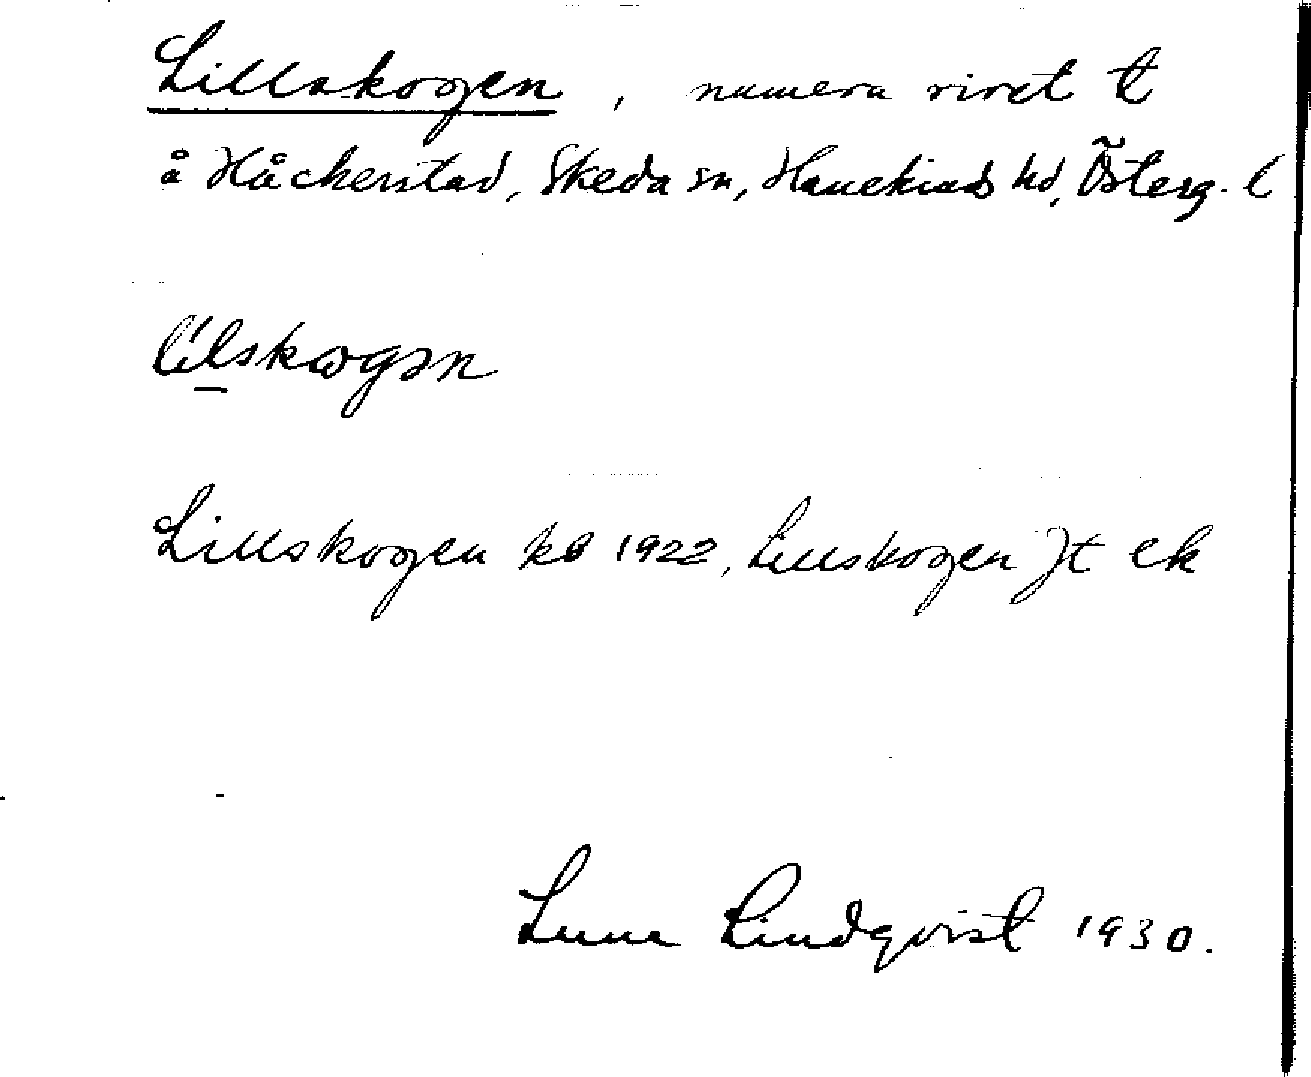 Lillskogen, numera rivet t
å Håckerstad, Skeda sn, Hanekinds hd, Österg. l
lílskogən
Lillskogen kb 1922, Lillskogen Jt ek
Lindqvist 1930.